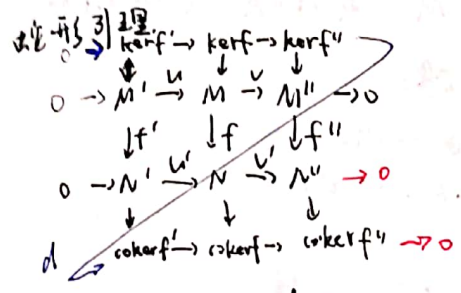 蛇形引理
0 → ker f' → ker f → ker f''
0 → M' →u M →v M'' → 0
↓f' ↓f ↓f''
0 → N' →u' N →v' N'' → 0
d coker f' → coker f → coker f'' → 0